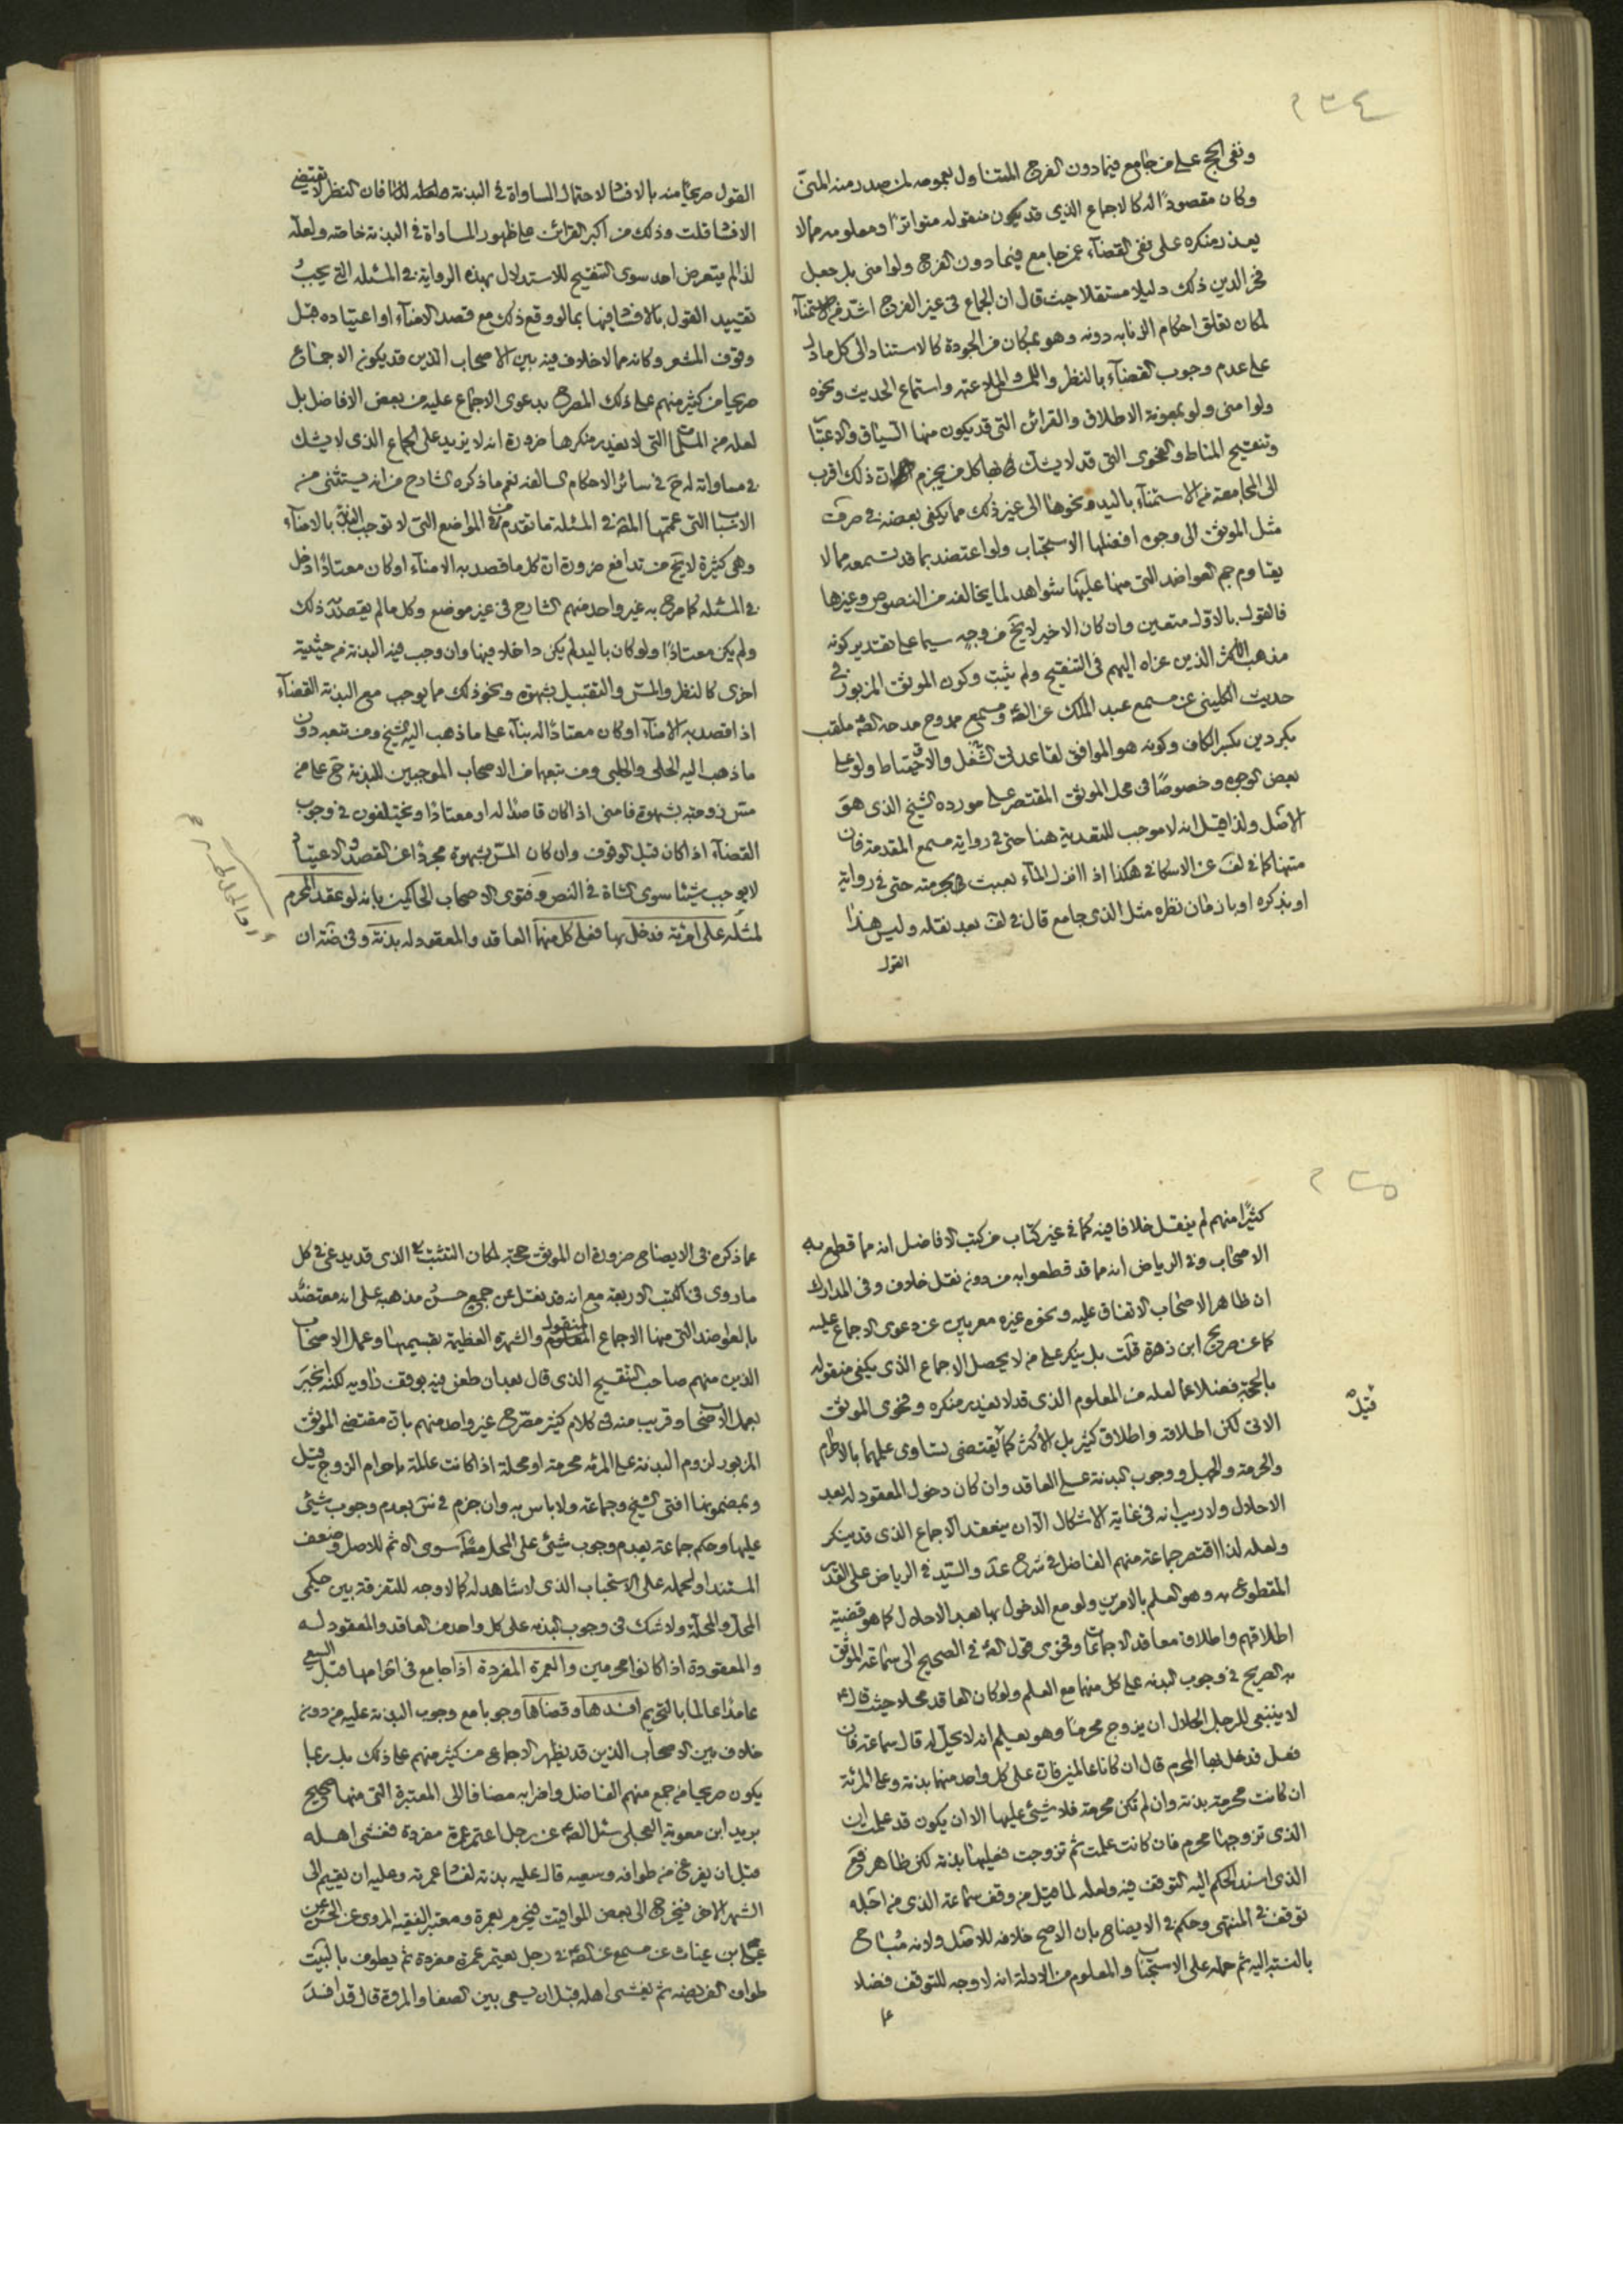 ٢٣٤
ونفى الحج على من جامع فيما دون الفرج المتناول بعمومه لمن صدر منه المنى
وكان مقصودًا له كالاجماع الذى قد يكون منقوله متواترًا ومعلومه مما لا
يعذر منكره على نفى القضآء عمن جامع فيما دون الفرج ولو امنى بل جعل
فخر الدين ذلك دليلا مستقلا حيث قال ان الجماع فى غير الفرج اشد من الاستمنآء
لمكان تعلق احكام الزنا به دونه وهو بمكان من الجودة كالاستناد الى كل ما دل
على عدم وجوب القضآء بالنظر والملاعبة واستماع الحديث ونحوه
ولو امنى ولو بمعونة الاطلاق والقرائن التى قد يكون منها السياق والاعتبار
وتنقيح المناط والفحوى التى قد لا يشك كل من يجزم ان ذلك اقرب
الى المجامعة من الاستمنآء باليد ونحوها الى غير ذلك مما يكفى بعضه فى صرف
مثل الموثق الى وجوه افضلها الاستحباب ولو اعتضد بما قد تسمعه مما لا
يقاوم جم العواضد التى منها عليها شواهد لما يخالفه من النصوص وغيرها
فالقول بالاول متعين وان كان الاخير لا يخ من وجه سيما على تقدير كونه
مذهب الاكثر الذين عزاه اليهم فى التنقيح ولم يثبت وكون الموثق المزبور فى
حديث الكلينى عن مسمع عبد الملك عن الصه ومسمع ممدوح مدحه الصه ملقب
بكردين بكسر الكاف وكونه هو الموافق لقاعدتى الشغل والاحتياط ولو على
بعض الوجوه وخصوصًا فى محل الموثق المقتصر على مورده الشيخ الذى هو
الاصل ولذا قيل انه لا موجب للتعدية هنا حتى فى رواية مسمع المقدمة فان
متنها كما فى لف عن الاسكافى هكذا اذا انزل المآء بعبث بحرمته حتى فى رواية
او بذكره او بادمان نظره مثل الذى جامع قال فى لف بعد نقله وليس هذا
القول
القول صريحًا منه بالافساد لاحتمال المساواة فى البدنة فان النظر لا يقتضى
الافساد قلت وذلك من اكبر القرائن على ظهور المساواة فى البدنة خاصة ولعله
لذا لم يتعرض احد سوى التنقيح للاستدلال بهذه الرواية فى المسئله التى يجب
تقييد القول بالافساد فيها بما لو وقع ذلك مع قصد الامنآء او اعتياده قبل
وقوف المشعر وكانه مما لا خلاف فيه بين الاصحاب الذين قد يكون الاجماع
صريحا من كثير منهم على ذلك المصرح بدعوى الاجماع عليه من بعض الافاضل بل
لعله من المسلمات التى لا يعذر منكرها ضرورة انه لا يزيد على الجماع الذى لا يشك
فى مساواته له ح فى سائر الاحكام السالفه نعم ما ذكره الشارح من انه يستثنى من
الاسباب التى عممها المص فى المسئله ما تقدم من المواضع التى لا توجب البدنة بالامنآء
وهى كثيرة لا يخ من تدافع ضرورة ان كل ما قصد به الامنآء او كان معتادًا دخل
فى المسئله كما صرح به غير واحد منهم الشارح فى غير موضع وكل ما لم يقصد به ذلك
ولم يكن معتادًا ولو كان باليد لم يكن داخلا فيها وان وجب فيه البدنة من حيثية
اخرى كالنظر والمس والتقبيل بشهوة ونحو ذلك مما يوجب مع البدنة القضآء
اذا قصد به الامنآء او كان معتادًا له بنآء على ما ذهب اليه الشيخ ومن تبعه دون
ما ذهب اليه الحلى والحلبى ومن تبعهما من الاصحاب الموجبين للبدنة ح على من
مس زوجته بشهوة فامنى اذا كان قاصدًا له او معتادًا ويختلفون فى وجوب
القضآء اذا كان قبل الوقوف وان كان المس بشهوة مجردًا عن القصد والاعتياد
لا يوجب شيئا سوى الشاة فى النص وفتوى الاصحاب الحاكمين بانه لو عقد المحرم
لمثله على امرئة فدخل بها فعلى كل منهما العاقد والمعقود له بدنة وفى ضة ان
٢٣٥
كثيرًا منهم لم ينقل خلافا فيه كما فى غير كتاب من كتب الافاضل انه مما قطع به
الاصحاب وفى الرياض انه مما قد قطعوا به من دون نقل خلاف وفى المدارك
ان ظاهر الاصحاب الاتفاق عليه ونحوه غيره معربين عن دعوى الاجماع عليه
كما عن صريح ابن زهرة قلت بل ينكر على من لا يحصل الاجماع الذى يكفى منقوله
بالحجة فضلا عما لعله من المعلوم الذى قد لا يعذر منكره وفحوى الموثق
الاتى لكن اطلاقه واطلاق كثير بل الاكثر كما يقتضى تساوى علمهما بالاحرام
والحرمة والجهل ووجوب البدنة على العاقد وان كان دخول المعقود له بعد
الاحلال ولا ريب انه فى غاية الاشكال الا ان ينعقد الاجماع الذى قد ينكر
ولعله لذا اقتصر جماعة منهم الفاضل فى شرح عد والسيد فى الرياض على القدر
المقطوع به وهو العلم بالامرين ولو مع الدخول بها بعد الاحلال كما هو قضية
اطلاقهم واطلاق معاقد الاجماعات وفحوى قول الصه فى الصحيح الى سماعة الموثق
به الصريح فى وجوب البدنه على كل منهما مع العلم ولو كان العاقد محلا حيث قال
لا ينبغى للرجل الحلال ان يزوج محرمًا وهو يعلم انه لا يحل له قال سماعة فان
فعل فدخل بها المحرم قال ان كانا عالمين فان على كل واحد منهما بدنة وعلى المرئة
ان كانت محرمة بدنة وان لم تكن محرمة فلا شيئ عليها الا ان يكون قد علمت ان
الذى تزوجها محرم فان كانت علمت ثم تزوجت فعليها بدنة لكن ظاهر فع
الذى اسند الحكم اليه التوقف فيه ولعله لما قيل من وقف سماعة الذى من اجله
توقف فى المنتهى وحكم فى الايضاح بان الاصح خلافه للاصل ولانه مباح
بالنسبة اليه ثم حمله على الاستحباب والمعلوم من الادلة انه لا وجه للتوقف فضلا
عما
قيل
عما ذكره فى الايضاح ضرورة ان الموثق حجة لمكان التثبت الذى قد يدعى فى كل
ما روى فى الكتب الاربعة مع انه قد نقل عن جمع حسن مذهبه على انه معتضد
بالعواضد التى منها الاجماع المنقول والشهرة العظيمة بقسيميها وعمل الاصحاب
الذين منهم صاحب التنقيح الذى قال بعد ان طعن فيه بوقف راويه لكنه انجبر
بعمل الاصحاب وقريب منه فى كلام كثير مصرح غير واحد منهم بان مقتضى الموثق
المزبور لزوم البدنة على المرئه محرمة او محلة اذا كانت عالمة باحرام الزوج قيل
وبمضمونها افتى الشيخ وجماعة ولا باس به وان جزم فى س بعدم وجوب شيئ
عليها وحكم جماعة بعدم وجوب شيئ على المحل مط سوى الاثم للاصل وضعف
المستند او لحمله على الاستحباب الذى لا شاهد له كما لا وجه للتفرقة بين حكمى
المحل والمحلة ولا شك فى وجوب البدنه على كل واحد من العاقد والمعقود له
والمعقودة اذا كانوا محرمين والعمرة المفردة اذا جامع فى احرامها قبل السعى
عامدًا عالما بالتحريم افسدها وقضاها وجوبا مع وجوب البدنة عليه من دون
خلاف بين الاصحاب الذين قد يظهر الاجماع من كثير منهم على ذلك بل ربما
يكون صريحا من جمع منهم الفاضل واضرابه مضافا الى المعتبرة التى منها صحيح
بريد ابن معوية العجلى سئل الصه عن رجل اعتمر عمرة مفردة فغشى اهله
قبل ان يفرغ من طوافه وسعيه قال عليه بدنة لفساد عمرته وعليه ان يقيم الى
الشهر الاخر فيخرج الى بعض المواقيت فيحرم بعمرة ومعتبر الفقيه المروى عن الحسن عن
على ابن رئاب عن مسمع عن الصه فى رجل يعتمر عمرة مفردة ثم يطوف بالبيت
طواف الفريضة ثم يغشى اهله قبل ان يسعى بين الصفا والمروة قال قد افسد